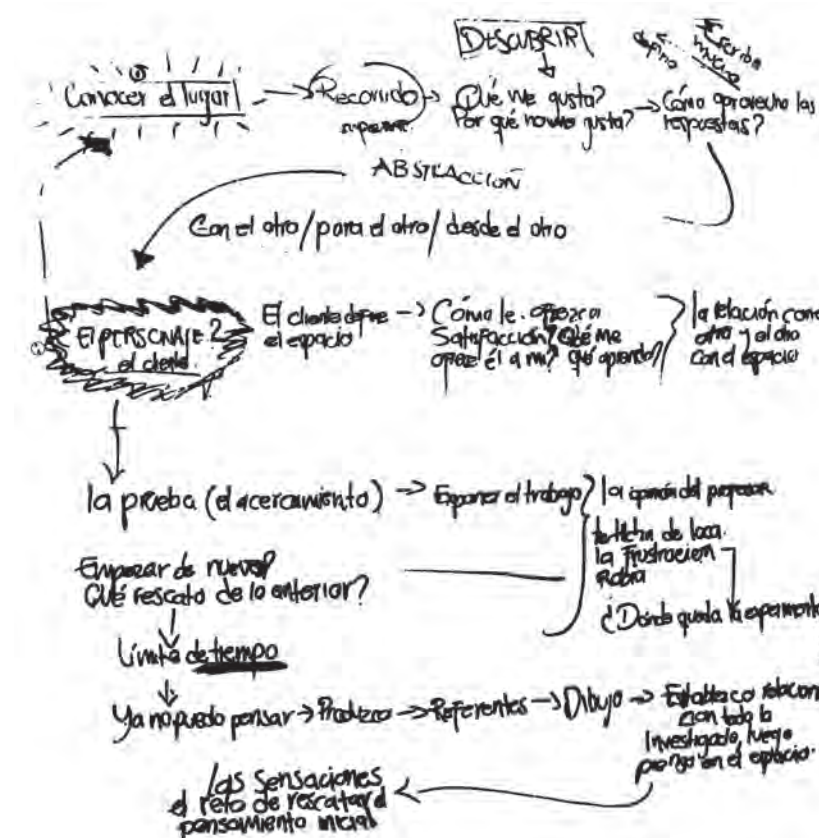 DESCUBRIR
Escribir
mucho
Conocer el lugar
Recorrido
Qué me gusta?
Por qué no me gusta?
Cómo aprovecho las
respuestas?
ABSTRACCIÓN
Con el otro / para el otro / desde el otro
El PERSONAJE?
el cliente
El cliente define
el espacio
Cómo le ofrezco
Satisfacción? Qué me
ofrece él a mi? qué aprendo?
la relación con el
otro y el otro
con el espacio
la prueba (el acercamiento)
Exponer el trabajo
la opinión del profesor
la frustración
Rabia
¿Dónde queda la experimenta
Empezar de nuevo?
Qué rescato de lo anterior?
Límite de tiempo
Ya no puedo pensar
Produzco
Referentes
Dibujo
Establezco relacion
con todo lo
investigado, luego
pienso en el espacio.
las sensaciones
el reto de rescatar el
pensamiento inicial